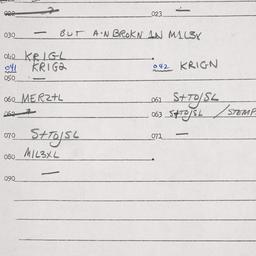 022 ? 023 —
030 — BUT A·N BROKN IN MIL3X
040 KRIGL
041 KRIG2 042 KRIGN
050 —
060 MERZ+L 061 S+TO/SL
062 ? 063 S+TO/SL /STEMP
070 S+TO/SL 071 —
080 MIL3XL
090 —